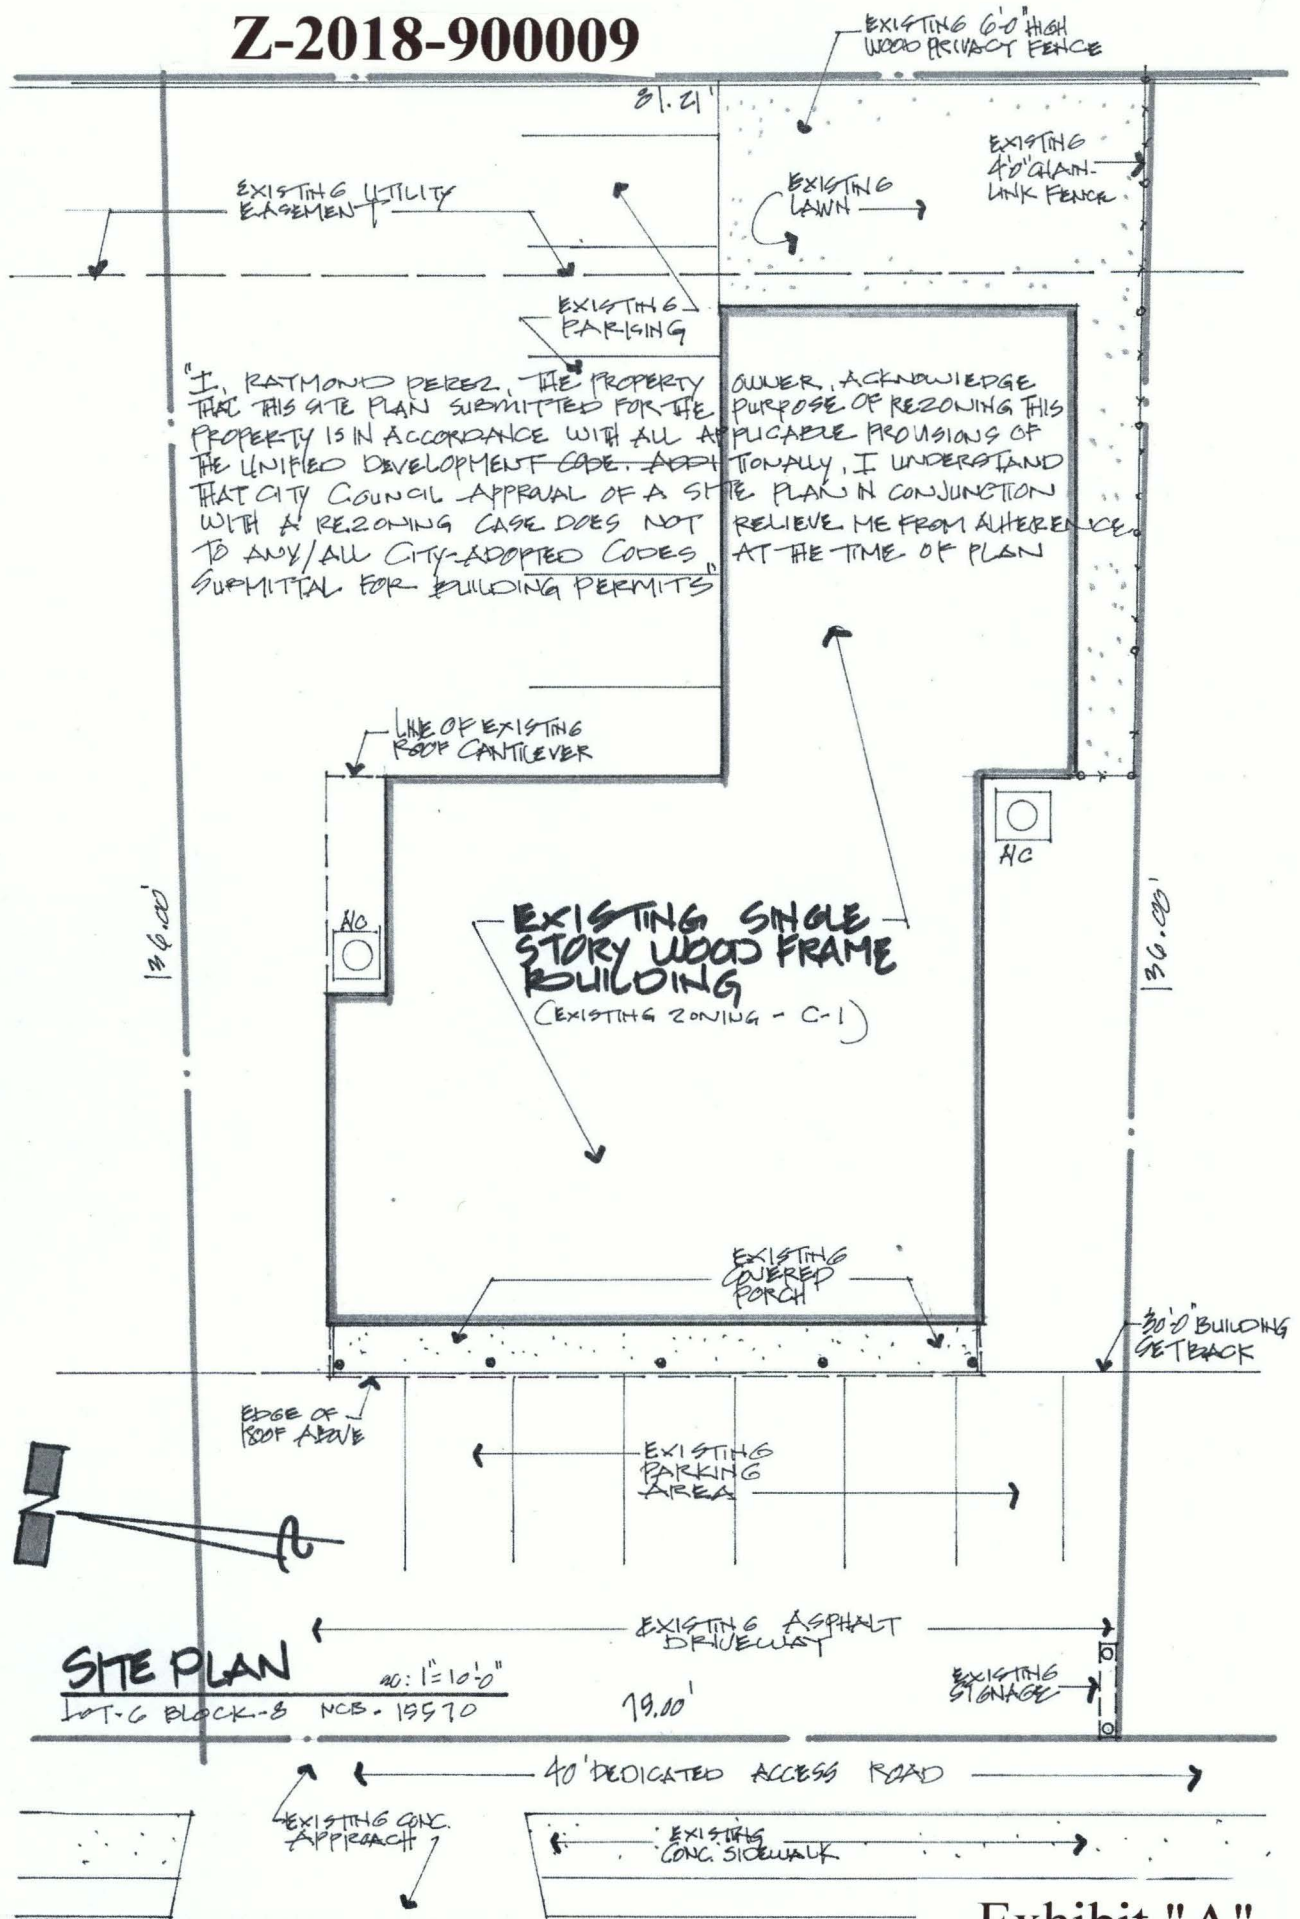 Z-2018-900009
EXISTING 6'-0" HIGH
WOOD PRIVACY FENCE
81.21'
EXISTING
4'-0" CHAIN-
LINK FENCE
EXISTING UTILITY
EASEMENT
EXISTING
LAWN
EXISTING
PARKING
"I, RAYMOND PEREZ, THE PROPERTY OWNER, ACKNOWLEDGE
THAT THIS SITE PLAN SUBMITTED FOR THE PURPOSE OF REZONING THIS
PROPERTY IS IN ACCORDANCE WITH ALL APPLICABLE PROVISIONS OF
THE UNIFIED DEVELOPMENT CODE. ADDITIONALLY, I UNDERSTAND
THAT CITY COUNCIL APPROVAL OF A SITE PLAN IN CONJUNCTION
WITH A REZONING CASE DOES NOT RELIEVE ME FROM ADHERENCE
TO ANY/ALL CITY-ADOPTED CODES AT THE TIME OF PLAN
SUBMITTAL FOR BUILDING PERMITS"
LINE OF EXISTING
ROOF CANTILEVER
A/C
A/C
136.00'
136.00'
EXISTING SINGLE
STORY WOOD FRAME
BUILDING
(EXISTING ZONING - C-1)
EXISTING
COVERED
PORCH
30'-0" BUILDING
SETBACK
EDGE OF
ROOF ABOVE
EXISTING
PARKING
AREA
EXISTING ASPHALT
DRIVEWAY
SITE PLAN
SC: 1"=10'-0"
LOT-6 BLOCK-8 NCB-15570
EXISTING
SIGNAGE
40' DEDICATED ACCESS ROAD
EXISTING CONC.
APPROACH
EXISTING
CONC. SIDEWALK
Exhibit "A"